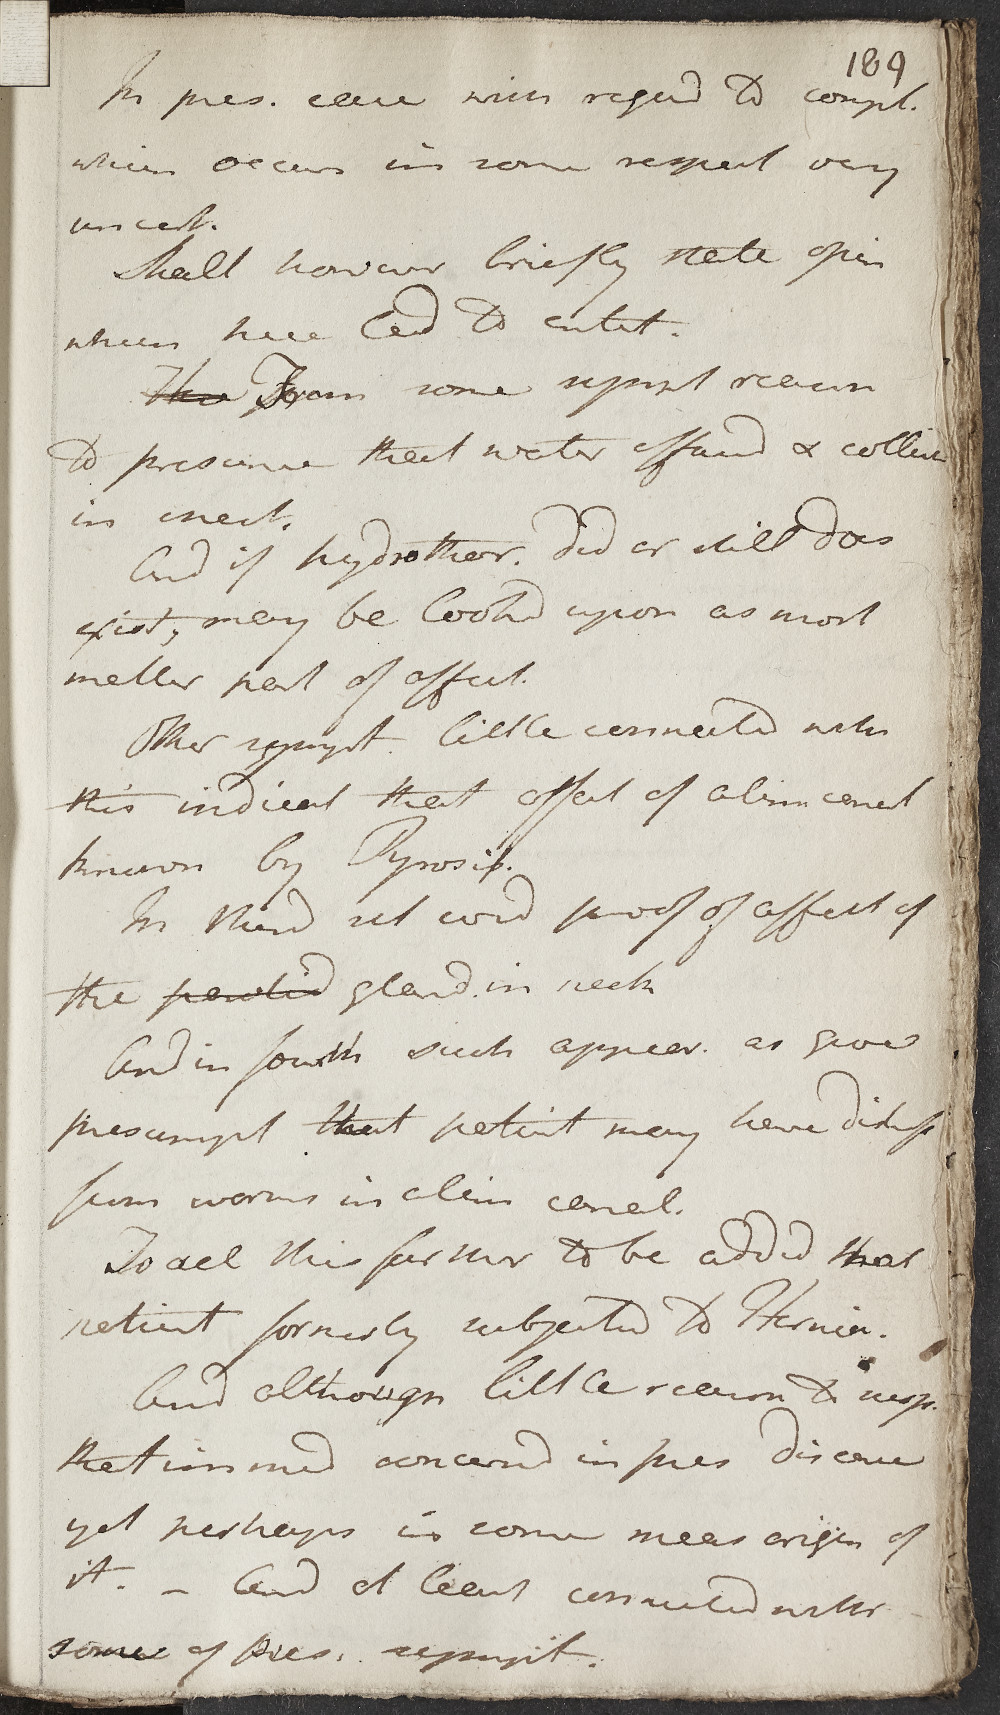 189
In pres. case with regard to compl.
which occurs in some respect very
uncert.
Shall however briefly state opin
which have led to entert.
Tho From some sympt reason
to presume that water effused & collect
in chest.
And if hydrothor. did or still does
exist, may be lookd upon as most
mater part of affect.
Other sympt. little connected with
this indicat that affect of alim canal
known by Pyrosis.
In third set evid proof of affect of
the parotid gland in neck
And in fourth such appear. as gives
presumpt that patient may have distress
from worms in alim canal.
To all this farther to be added that
patient formerly subjected to Hernia.
And although little reason to susp.
that immed concerned in pres disease
yet perhaps in some meas origin of
it. – And at least connected with
some of pres. sympt.